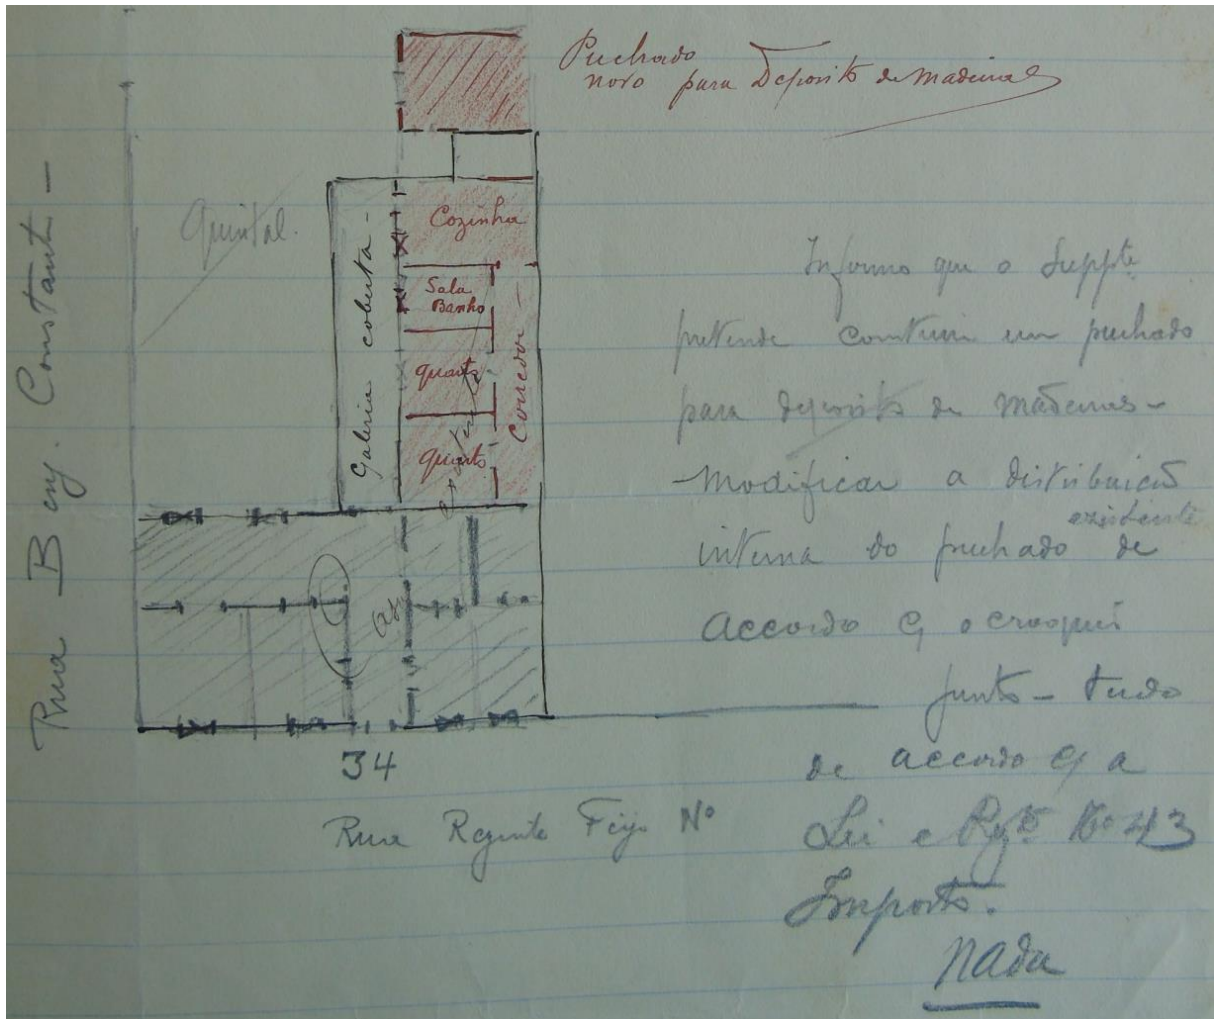 Puchado
novo para Deposito de Madeiras
Rua Benj. Constant -
Quintal.
Galeria coberta -
Cozinha
Sala
Banho
quarto
quarto
Corredor -
34
Rua Regente Feijo Nº
Informo que o Suppte
pretende construir um puchado
para deposito de madeiras -
Modificar a distribuição
existente
interna do puchado de
accordo c/ o croquis
junto - tudo
de accordo c/ a
Lei e Regto Nº 43
Imposto.
Nada